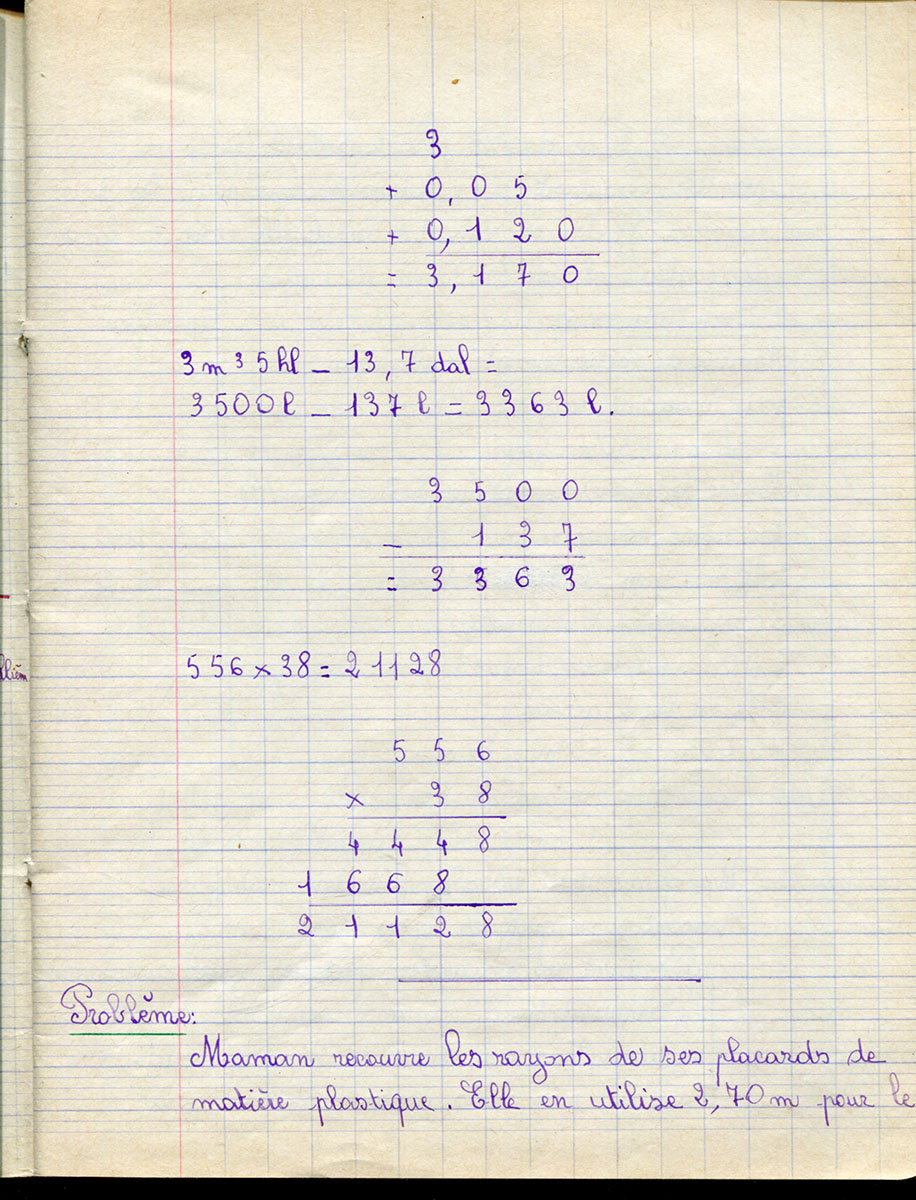 3
+ 0,05
+ 0,120
= 3,170
3m³5hl – 13,7 dal =
3500l – 137l = 3363l.
3500
– 137
= 3363
556 × 38 = 21128
556
× 38
4448
1668
21128
Problème:
Maman recouvre les rayons de ses placards de
matière plastique. Elle en utilise 2,70m pour le